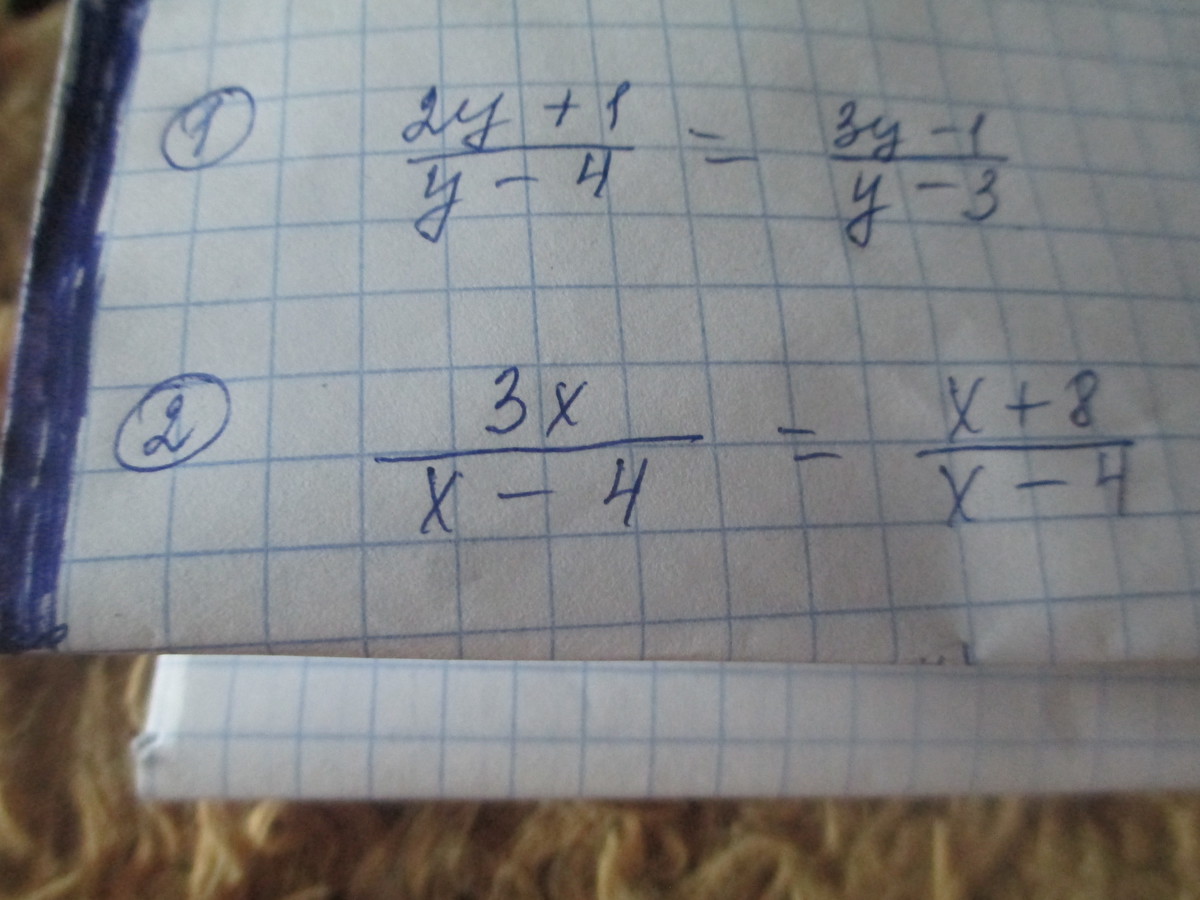 ① (2y + 1)/(y - 4) = (3y - 1)/(y - 3)
② 3x/(x - 4) = (x + 8)/(x - 4)